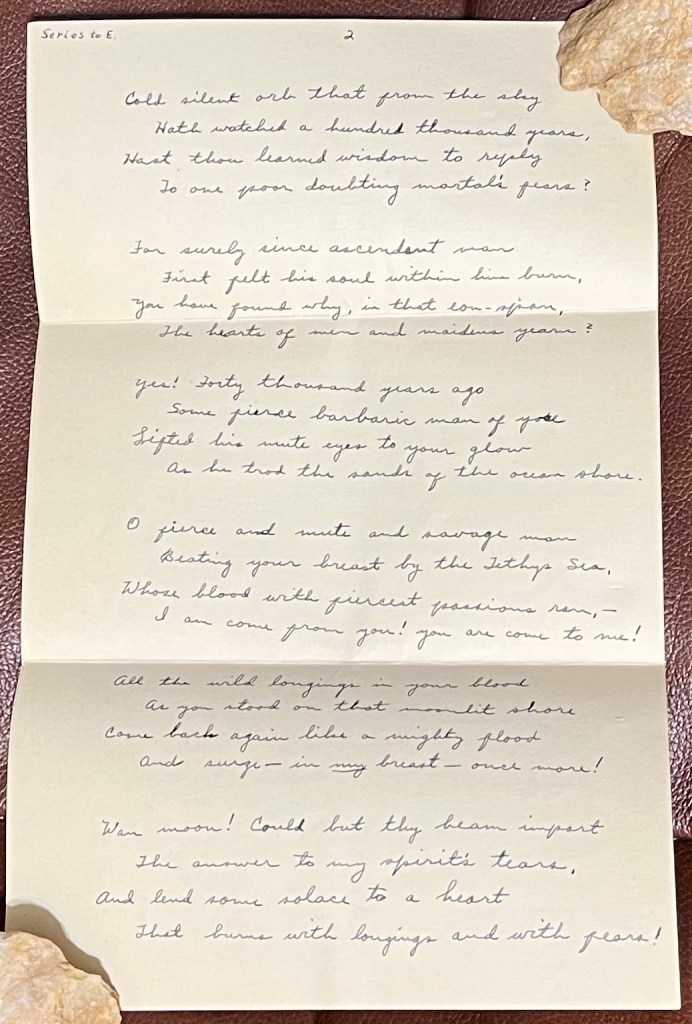 Series to E.
2
Cold silent orb that from the sky
Hath watched a hundred thousand years,
Hast thou learned wisdom to reply
To one poor doubting mortal's fears?
For surely since ascendent man
First felt his soul within him burn,
You have found why, in that eon-span,
The hearts of men and maidens yearn?
Yes! Forty thousand years ago
Some fierce barbaric man of yore
Lifted his mute eyes to your glow
As he trod the sands of the ocean shore.
O fierce and mute and savage man
Beating your breast by the Tethys Sea,
Whose blood with fiercest passions ran,—
I am come from you! you are come to me!
All the wild longings in your blood
As you stood on that moonlit shore
Come back again like a mighty flood
And surge — in my breast — once more!
Wan moon! Could but thy beam impart
The answer to my spirit's tears,
And lend some solace to a heart
That burns with longings and with fears!